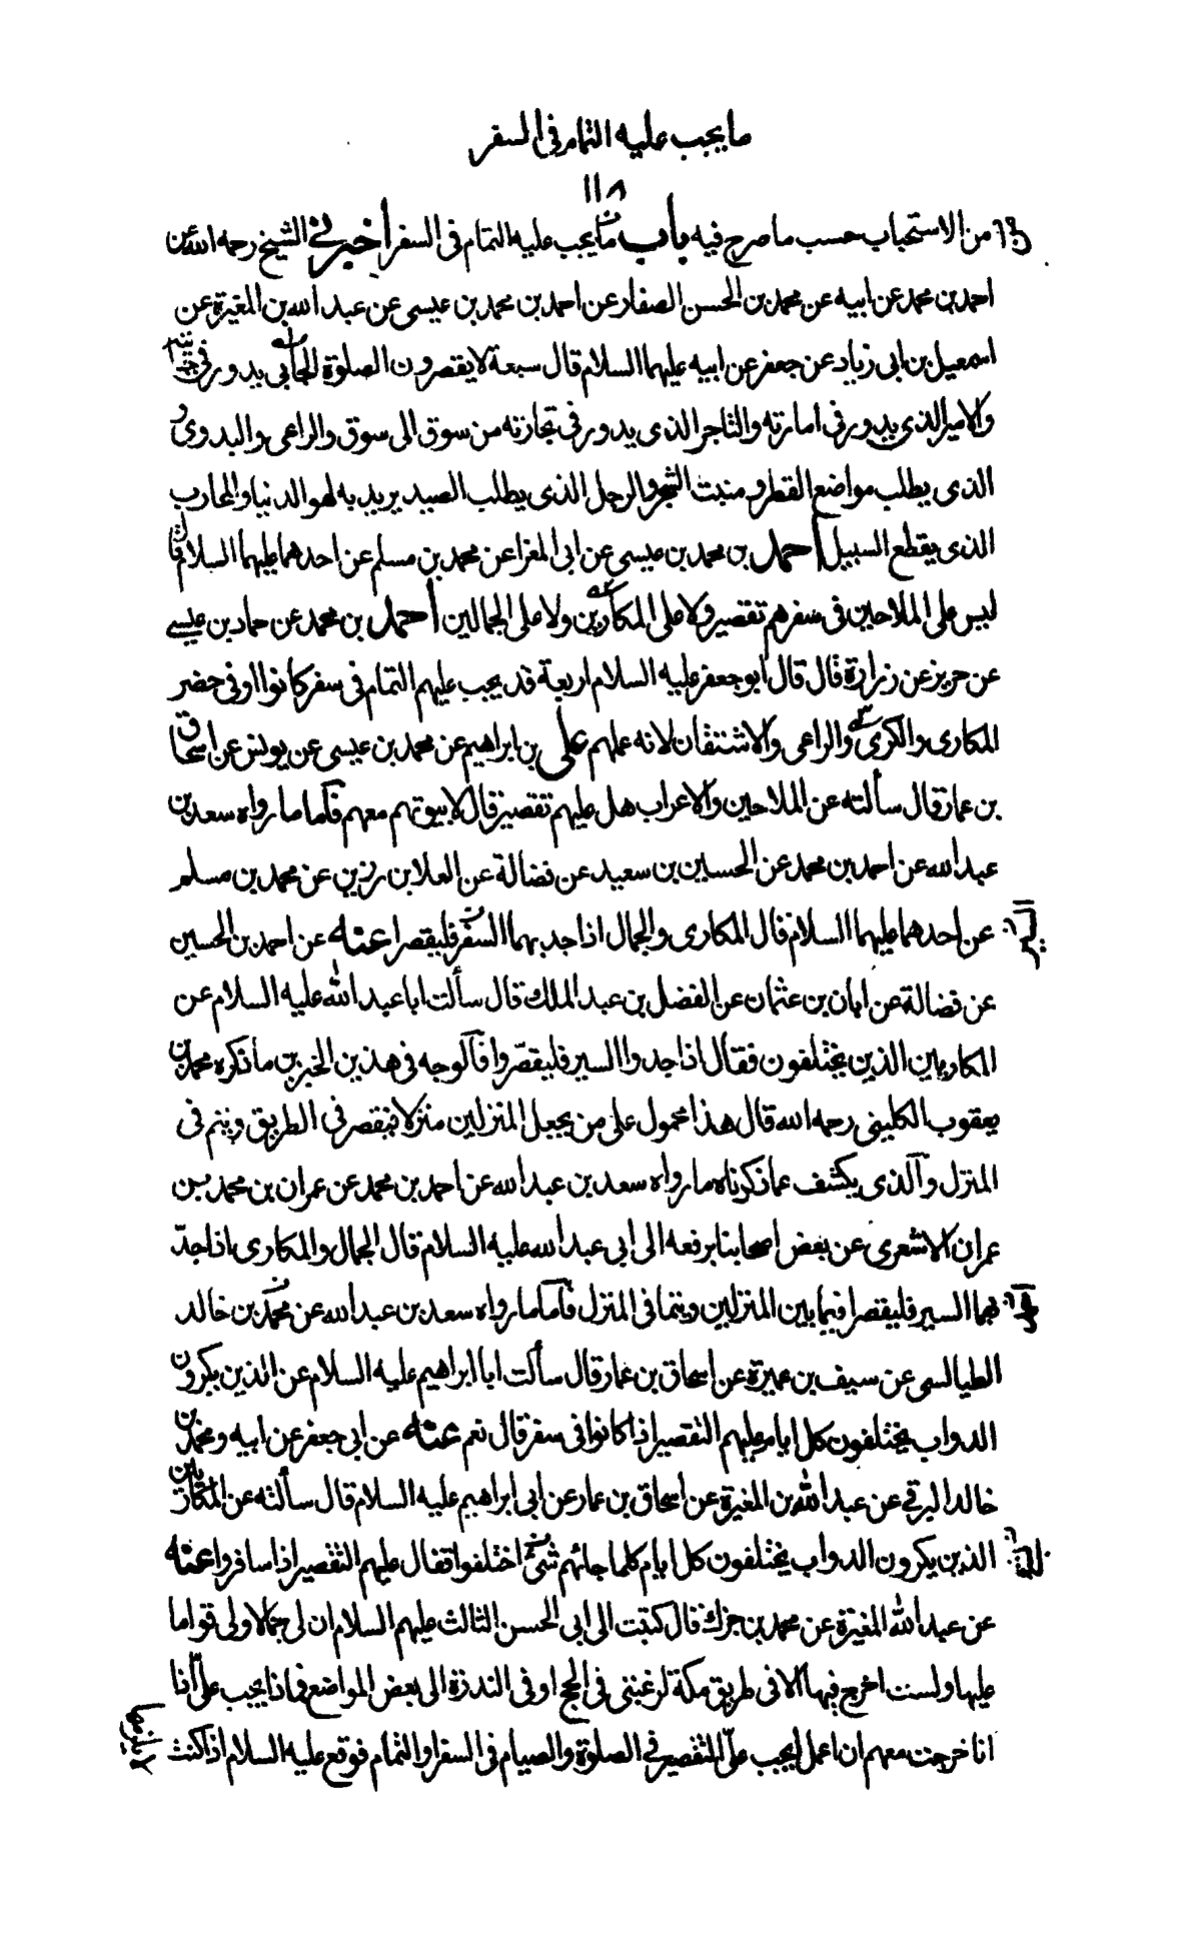 ما يجب عليه التمام في السفر
١١٨
من الاستحباب حسب ما صرح فيه باب ما يجب عليه التمام في السفر أخبرني الشيخ رحمه الله عن
احمد بن محمد عن ابيه عن محمد بن الحسن الصفار عن احمد بن محمد بن عيسى عن عبد الله بن المغيرة عن
اسمعيل بن ابى زياد عن جعفر عن ابيه عليهما السلام قال سبعة لا يقصرون الصلوة الجابي يدور في
والامير الذى يدور في امارته والتاجر الذى يدور في تجارته من سوق الى سوق والراعى والبدوى
الذى يطلب مواضع القطر و منبت الشجر والرجل الذى يطلب الصيد يريد به لهو الدنيا والمحارب
الذى يقطع السبيل أحمد بن محمد بن عيسى عن ابى المغرا عن محمد بن مسلم عن احدهما عليهما السلام قال
ليس على الملاحين في سفرهم تقصير ولا على المكارين ولا على الجمالين أحمد بن محمد عن حماد بن عيسى
عن حريز عن زرارة قال قال أبو جعفر عليه السلام اربعة قد يجب عليهم التمام في سفر كانوا او في حضر
المكارى والكرى والراعى والاشتقان لانه عملهم على بن ابراهيم عن محمد بن عيسى عن يونس عن اسحاق
بن عمار قال سألته عن الملاحين والاعراب هل عليهم تقصير قال لا بيوتهم معهم فأما ما رواه سعد بن
عبد الله عن احمد بن محمد عن الحسين بن سعيد عن فضالة عن العلا بن رزين عن محمد بن مسلم
عن احدهما عليهما السلام قال المكارى والجمال اذا جد بهما السفر فليقصرا عنه عن احمد بن الحسين
عن فضالة عن ابان بن عثمان عن الفضل بن عبد الملك قال سألت ابا عبد الله عليه السلام عن
المكاريين الذين يختلفون فقال اذا جدوا السير فليقصّروا فآلوجه في هذين الخبرين ما ذكره محمد بن
يعقوب الكليني رحمه الله قال هذا محمول على من يجعل المنزلين منزلا فيقصر في الطريق ويتم في
المنزل وآلذى يكشف عما ذكرناه ما رواه سعد بن عبد الله عن احمد بن محمد عن عمران بن محمد بن
عمران الاشعرى عن بعض اصحابنا يرفعه الى ابى عبد الله عليه السلام قال الجمال والمكارى اذا جدّ
بهما السير فليقصرا فيما بين المنزلين ويتما في المنزل فأما ما رواه سعد بن عبد الله عن محمد بن خالد
الطيالسى عن سيف بن عميرة عن اسحاق بن عمار قال سألت ابا ابراهيم عليه السلام عن الذين يكرون
الدواب يختلفون كل ايام عليهم التقصير اذا كانوا في سفر قال نعم عنه عن ابى جعفر عن ابيه و محمد بن
خالد البرقي عن عبد الله بن المغيرة عن اسحاق بن عمار عن ابى ابراهيم عليه السلام قال سألته عن المكارين
الذين يكرون الدواب يختلفون كل ايام كلما جائهم شئ اختلفوا فقال عليهم التقصير اذا سافروا عنه
عن عبد الله المغيرة عن محمد بن جزك قال كتبت الى ابى الحسن الثالث عليهم السلام ان لى جمالا ولى قواما
عليها ولست اخرج فيها الا في طريق مكة لرغبتى في الحج او في الندرة الى بعض المواضع فماذا يجب علىّ اذا
انا خرجت معهم ان اعمل ايجب علىّ التقصير في الصلوة والصيام في السفر او التمام فوقع عليه السلام اذا كنت